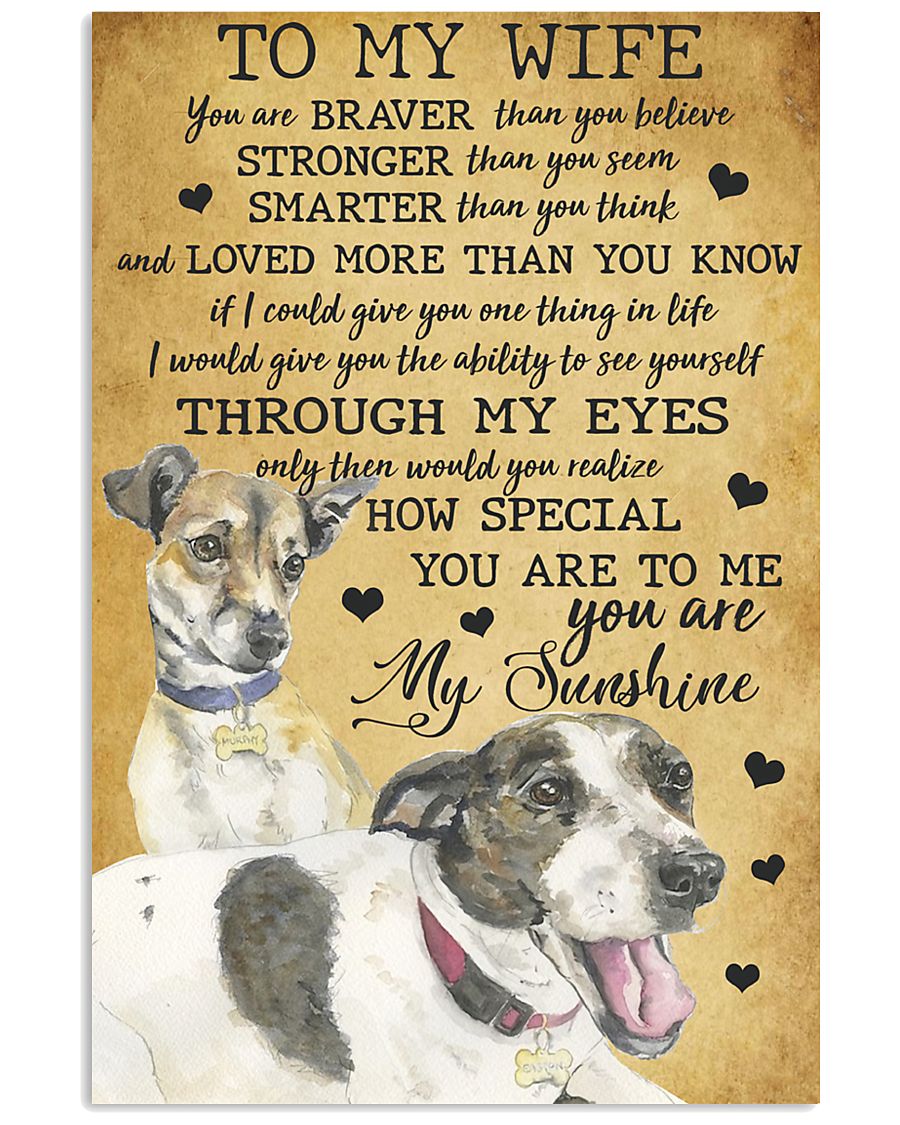 TO MY WIFE
You are BRAVER than you believe
STRONGER than you seem
SMARTER than you think
and LOVED MORE THAN YOU KNOW
if I could give you one thing in life
I would give you the ability to see yourself
THROUGH MY EYES
only then would you realize
HOW SPECIAL
YOU ARE TO ME
you are
My Sunshine
MURPHY
EASTON